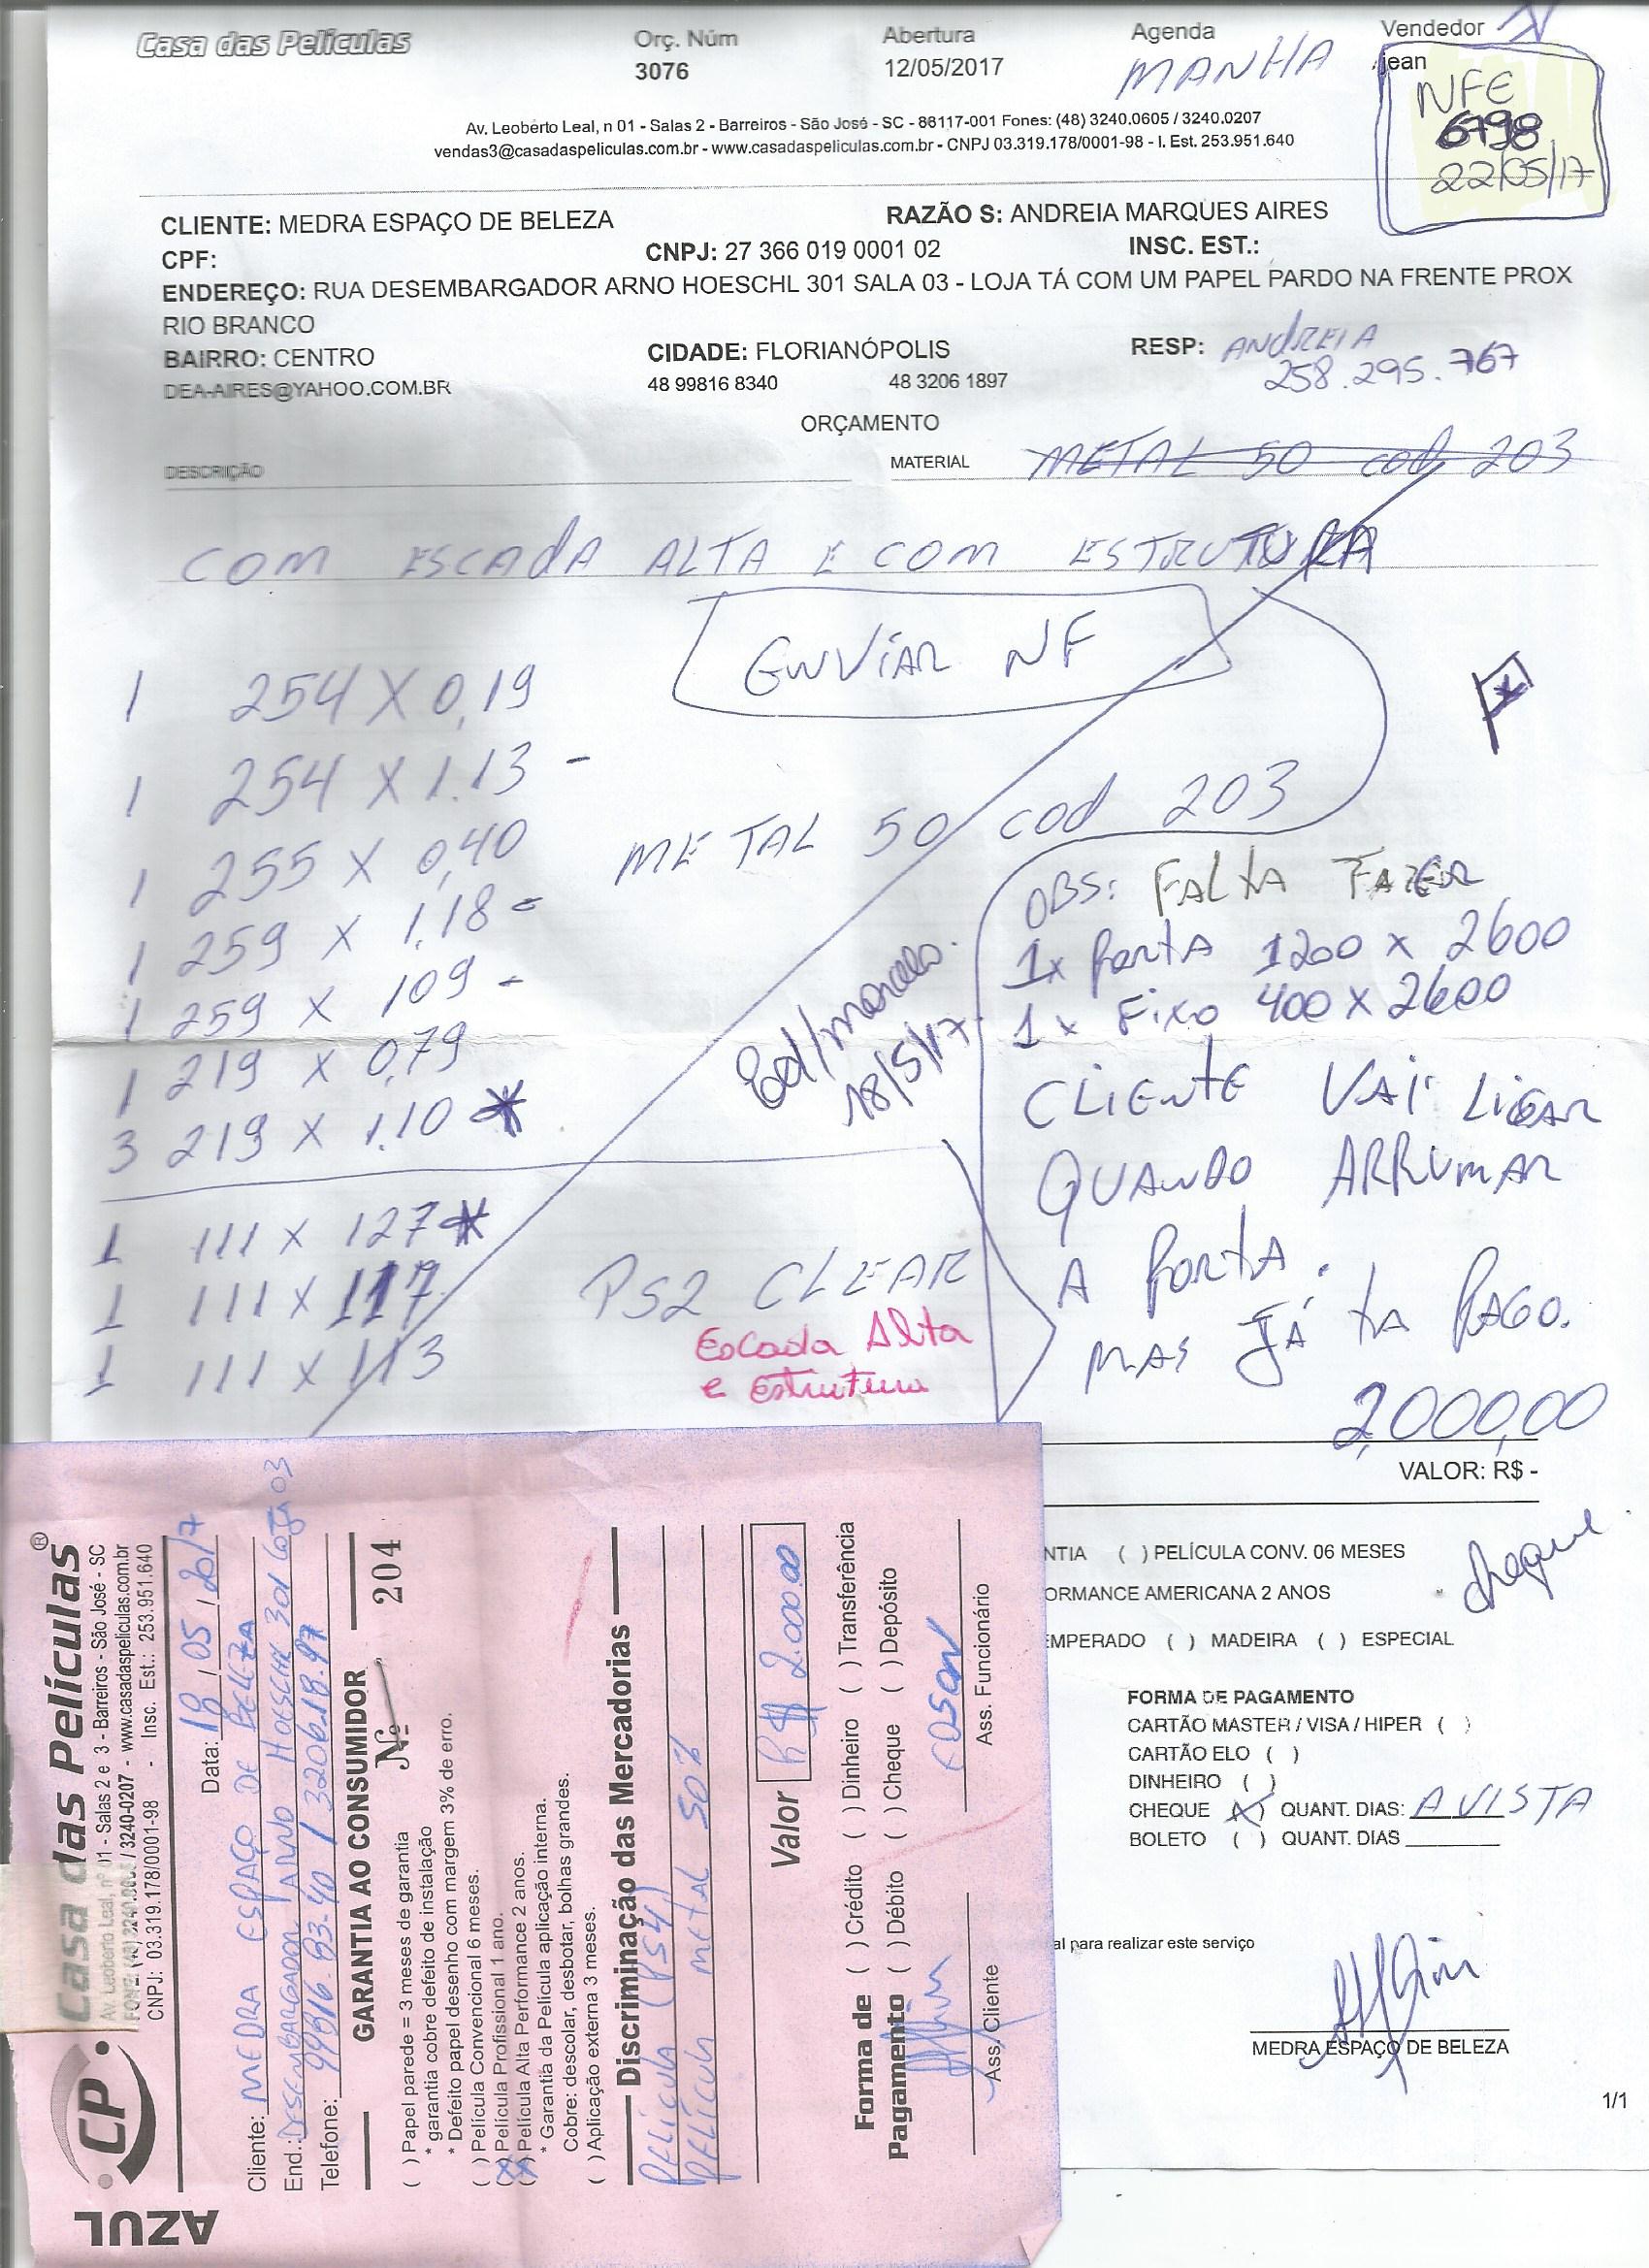 Casa das Películas
Orç. Núm
3076
Abertura
12/05/2017
Agenda
MANHA
Vendedor
jean
NFE
6798
22/05/17
Av. Leoberto Leal, n 01 - Salas 2 - Barreiros - São José - SC - 88117-001 Fones: (48) 3240.0605 / 3240.0207
vendas3@casadaspeliculas.com.br - www.casadaspeliculas.com.br - CNPJ 03.319.178/0001-98 - I. Est. 253.951.640
CLIENTE: MEDRA ESPAÇO DE BELEZA
RAZÃO S: ANDREIA MARQUES AIRES
CPF:
CNPJ: 27 366 019 0001 02
INSC. EST.:
ENDEREÇO: RUA DESEMBARGADOR ARNO HOESCHL 301 SALA 03 - LOJA TÁ COM UM PAPEL PARDO NA FRENTE PROX
RIO BRANCO
BAIRRO: CENTRO
CIDADE: FLORIANÓPOLIS
RESP: ANDREIA
258.295.767
DEA-AIRES@YAHOO.COM.BR
48 99816 8340
48 3206 1897
ORÇAMENTO
DESCRIÇÃO
MATERIAL
METAL 50 cod 203
COM ESCADA ALTA E COM ESTRUTURA
ENVIAR NF
1 254 X 0,19
1 254 X 1.13 -
1 255 X 0,40
1 259 X 1,18 -
1 259 X 109 -
1 219 X 0,79
3 219 X 1.10 *
METAL 50 cod 203
Ed/Marcelo.
18/5/17
1 111 X 127 *
1 111 X 117
1 111 X 113
PS2 CLEAR
Escada Alta
e Estrutura
OBS: FALTA FAZER
1x Porta 1200 x 2600
1x Fixo 400 x 2600
CLIENTE VAI LIGAR
QUANDO ARRUMAR
A PORTA.
MAS JÁ TA PAGO.
2,000,00
VALOR: R$ -
cheque
NTIA ( ) PELÍCULA CONV. 06 MESES
ORMANCE AMERICANA 2 ANOS
EMPERADO ( ) MADEIRA ( ) ESPECIAL
FORMA DE PAGAMENTO
CARTÃO MASTER / VISA / HIPER ( )
CARTÃO ELO ( )
DINHEIRO ( )
CHEQUE (X) QUANT. DIAS: A VISTA
BOLETO ( ) QUANT. DIAS
al para realizar este serviço
MEDRA ESPAÇO DE BELEZA
1/1
AZUL
CP
Casa das Películas®
Av. Leoberto Leal, nº 01 - Salas 2 e 3 - Barreiros - São José - SC
FONE: (48) 3240.0605 / 3240-0207 - www.casadaspeliculas.com.br
CNPJ: 03.319.178/0001-98 - Insc. Est.: 253.951.640
Data: 18, 05, 2017
Cliente: MEDRA ESPAÇO DE BELEZA
End.: DESEMBARGADOR ARNO HOESCHL 301 Loja 03
Telefone: 99816.83-40 / 3206.18.97
GARANTIA AO CONSUMIDOR
Nº 204
( ) Papel parede = 3 meses de garantia
* garantia cobre defeito de instalação
* Defeito papel desenho com margem 3% de erro.
( ) Película Convencional 6 meses.
(X) Película Profissional 1 ano.
(X) Película Alta Performance 2 anos.
* Garantia da Película aplicação interna.
Cobre: descolar, desbotar, bolhas grandes.
( ) Aplicação externa 3 meses.
Discriminação das Mercadorias
Película (PS4)
Película metal 50%
Valor R$ 2.000.00
Forma de Pagamento
( ) Crédito ( ) Dinheiro ( ) Transferência
( ) Débito ( ) Cheque ( ) Depósito
Ass. Cliente
Ass. Funcionário